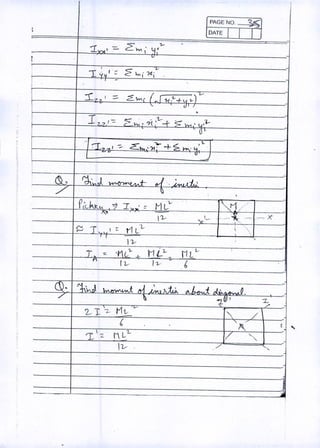 PAGE NO. 35
DATE
Ixx' = Σmi yi²
Iyy' = Σmi xi²
Izz' = Σmi (√xi²+yi²)²
Izz' = Σmi xi² + Σmi yi²
Izz' = Σmi xi² + Σmi yi²
Q. Find moment of inertia.
Ixx' = ML²/12
M
x' x
≈ Iyy' = ML²/12
IA = ML²/12 + ML²/12 = ML²/6
Q. Find moment of inertia about diagonal.
2 I' = ML²/6
I' = ML²/12